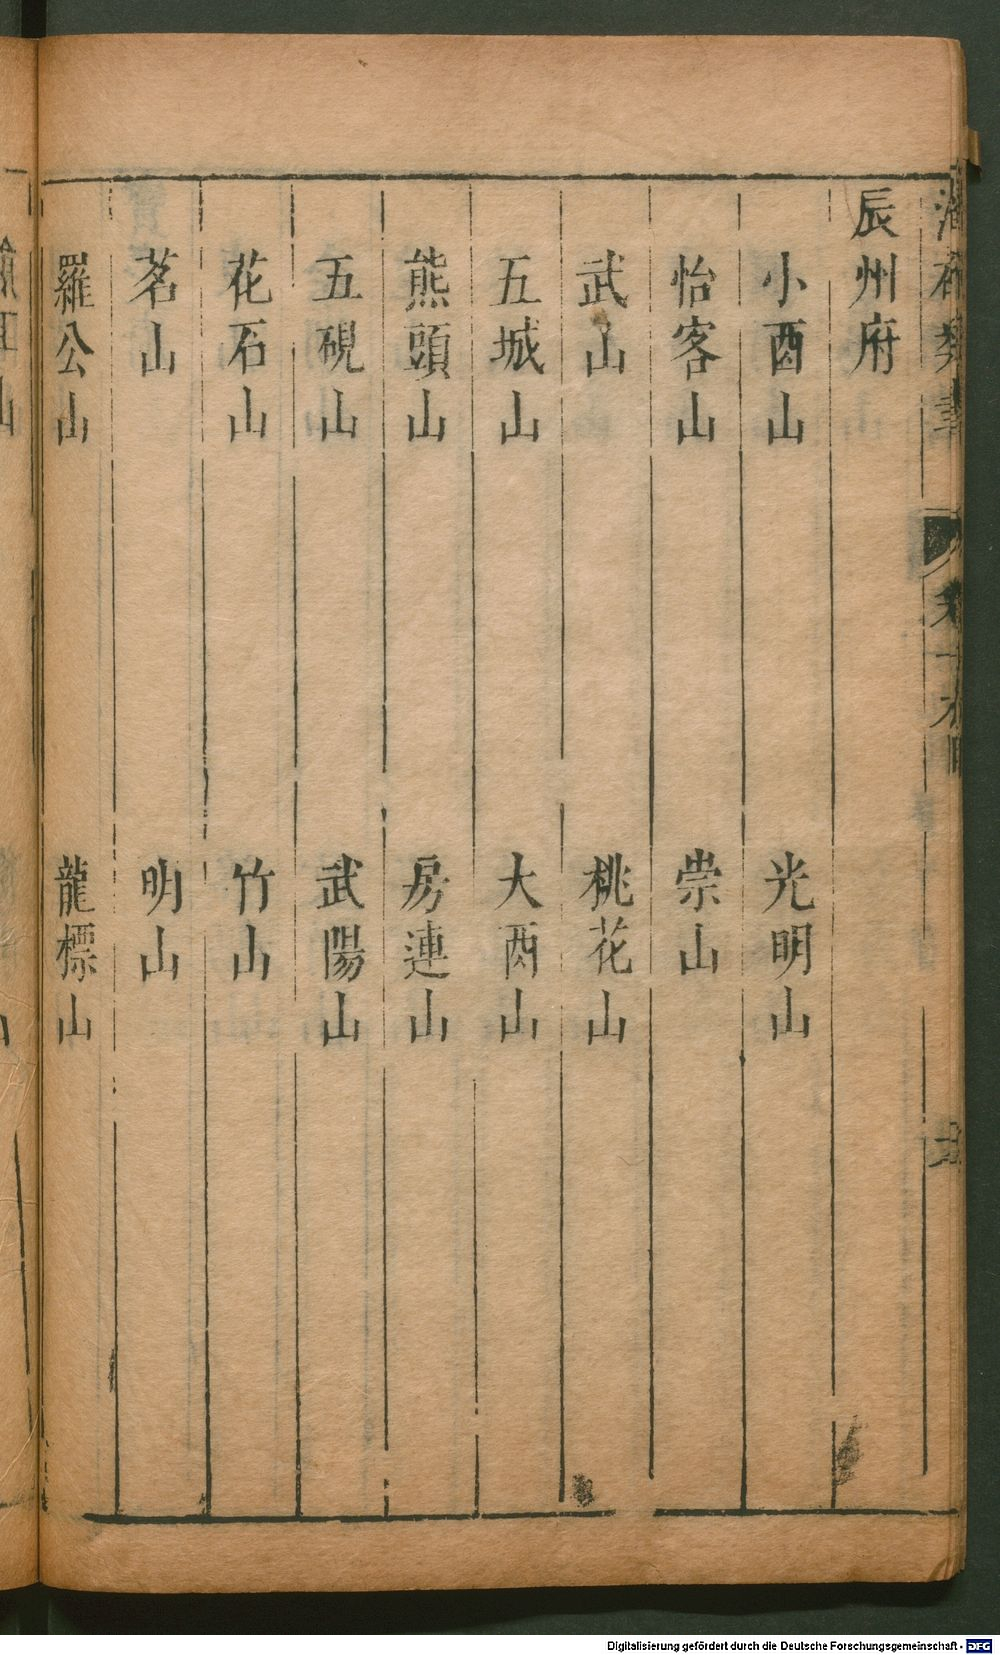 辰州府
小酉山　光明山
怡客山　崇山
武山　桃花山
五城山　大酉山
熊頭山　房連山
五硯山　武陽山
花石山　竹山
茗山　明山
羅公山　龍標山
Digitalisierung gefördert durch die Deutsche Forschungsgemeinschaft - DFG